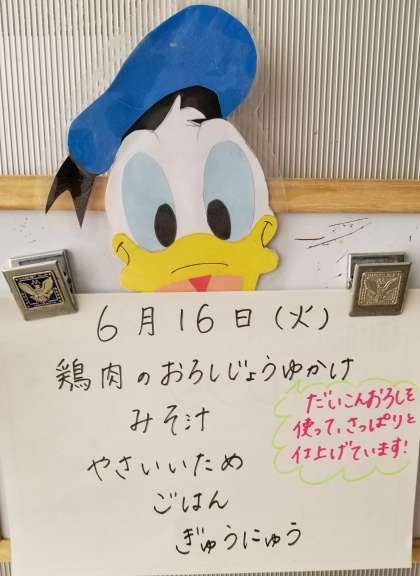 6月16日(火)
鶏肉のおろしじょうゆかけ
みそ汁
やさいいため
ごはん
ぎゅうにゅう
だいこんおろしを
使って、さっぱりと
仕上げています!